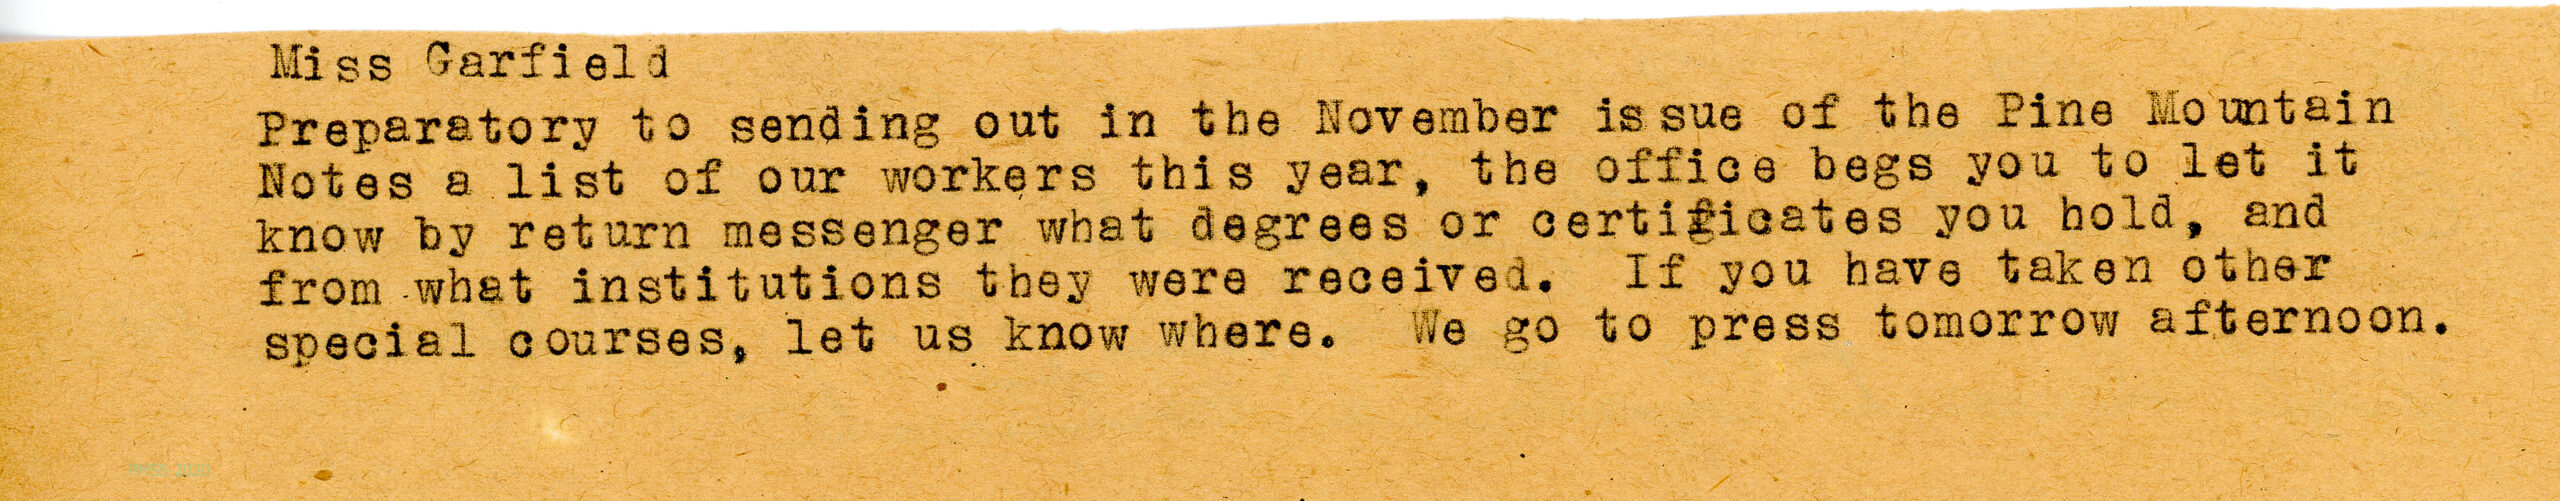 Miss Garfield
Preparatory to sending out in the November issue of the Pine Mountain
Notes a list of our workers this year, the office begs you to let it
know by return messenger what degrees or certificates you hold, and
from what institutions they were received. If you have taken other
special courses, let us know where. We go to press tomorrow afternoon.
PMSS 2020